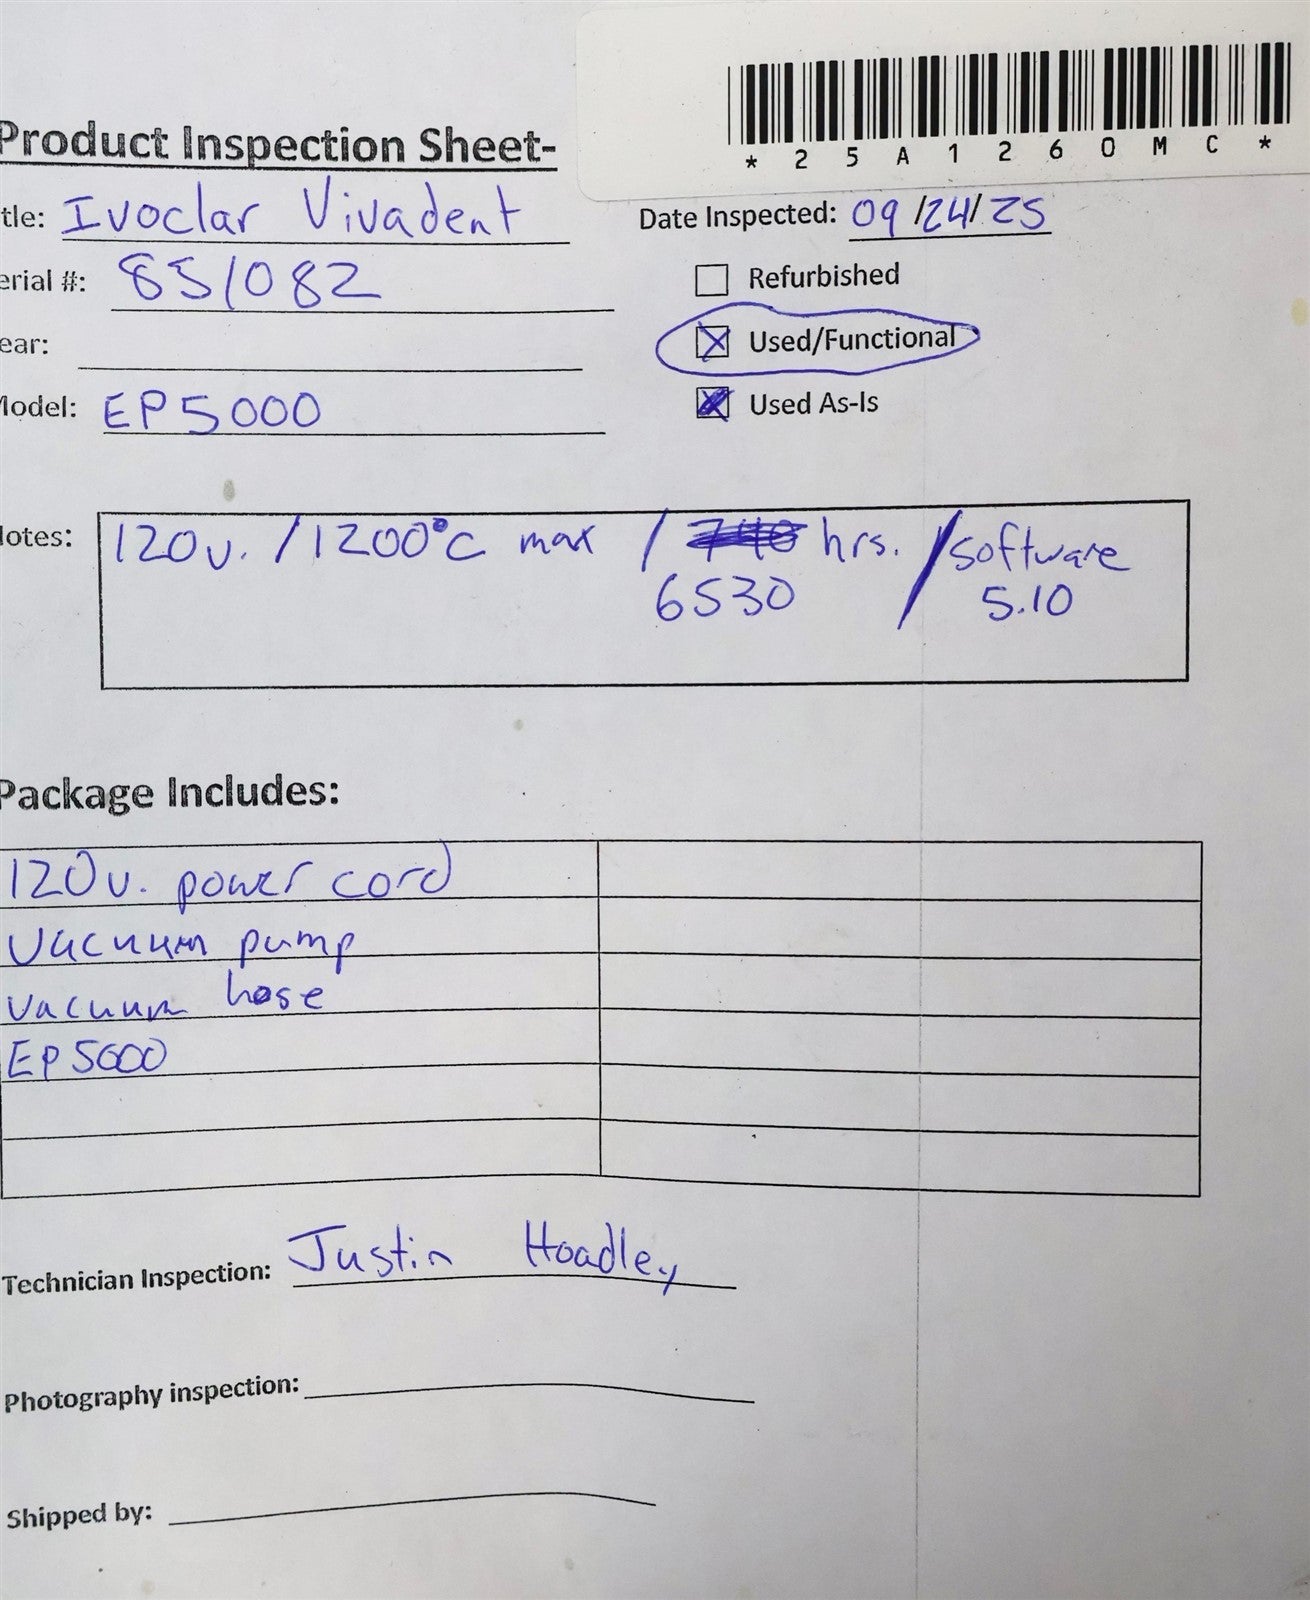 *25A1260MC*
Product Inspection Sheet-
tle: Ivoclar Vivadent
Date Inspected: 09/24/25
erial #: 851082
Refurbished
ear:
Used/Functional
Model: EP5000
Used As-Is
Notes: 120v. / 1200°C max / hrs. / software
6530 5.10
Package Includes:
120v. power cord
vacuum pump
vacuum hose
EP5000
Technician Inspection: Justin Hoadley
Photography inspection:
Shipped by: